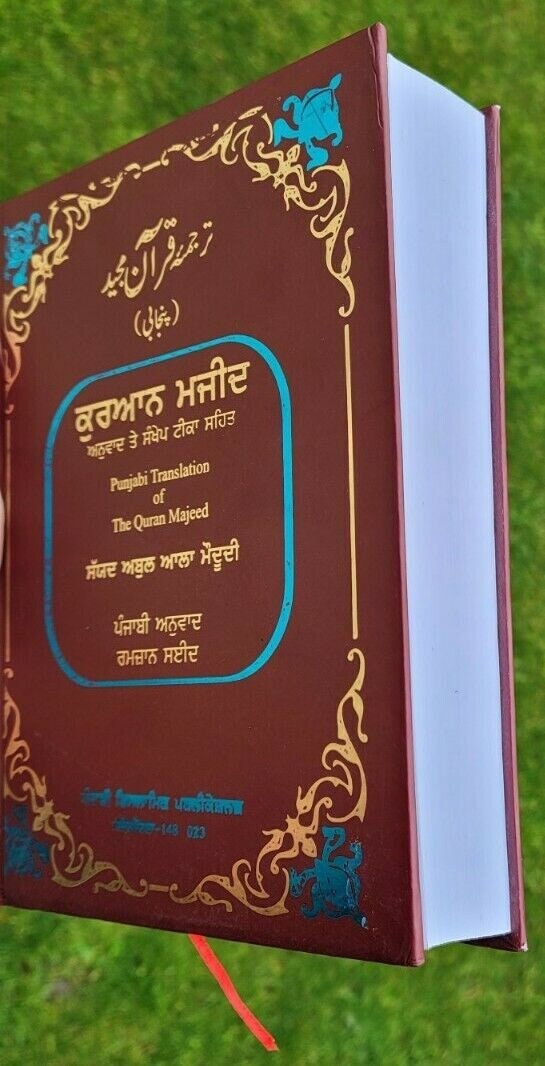 ترجمۂ قرآن مجید
(پنجابی)
ਕੁਰਆਨ ਮਜੀਦ
ਅਨੁਵਾਦ ਤੇ ਸੰਖੇਪ ਟੀਕਾ ਸਹਿਤ
Punjabi Translation
of
The Quran Majeed
ਸੱਯਦ ਅਬੁਲ ਆਲਾ ਮੌਦੂਦੀ
ਪੰਜਾਬੀ ਅਨੁਵਾਦ
ਰਮਜ਼ਾਨ ਸਈਦ
ਇਸਲਾਮਿਕ ਪਬਲੀਕੇਸ਼ਨਜ਼
-148 023